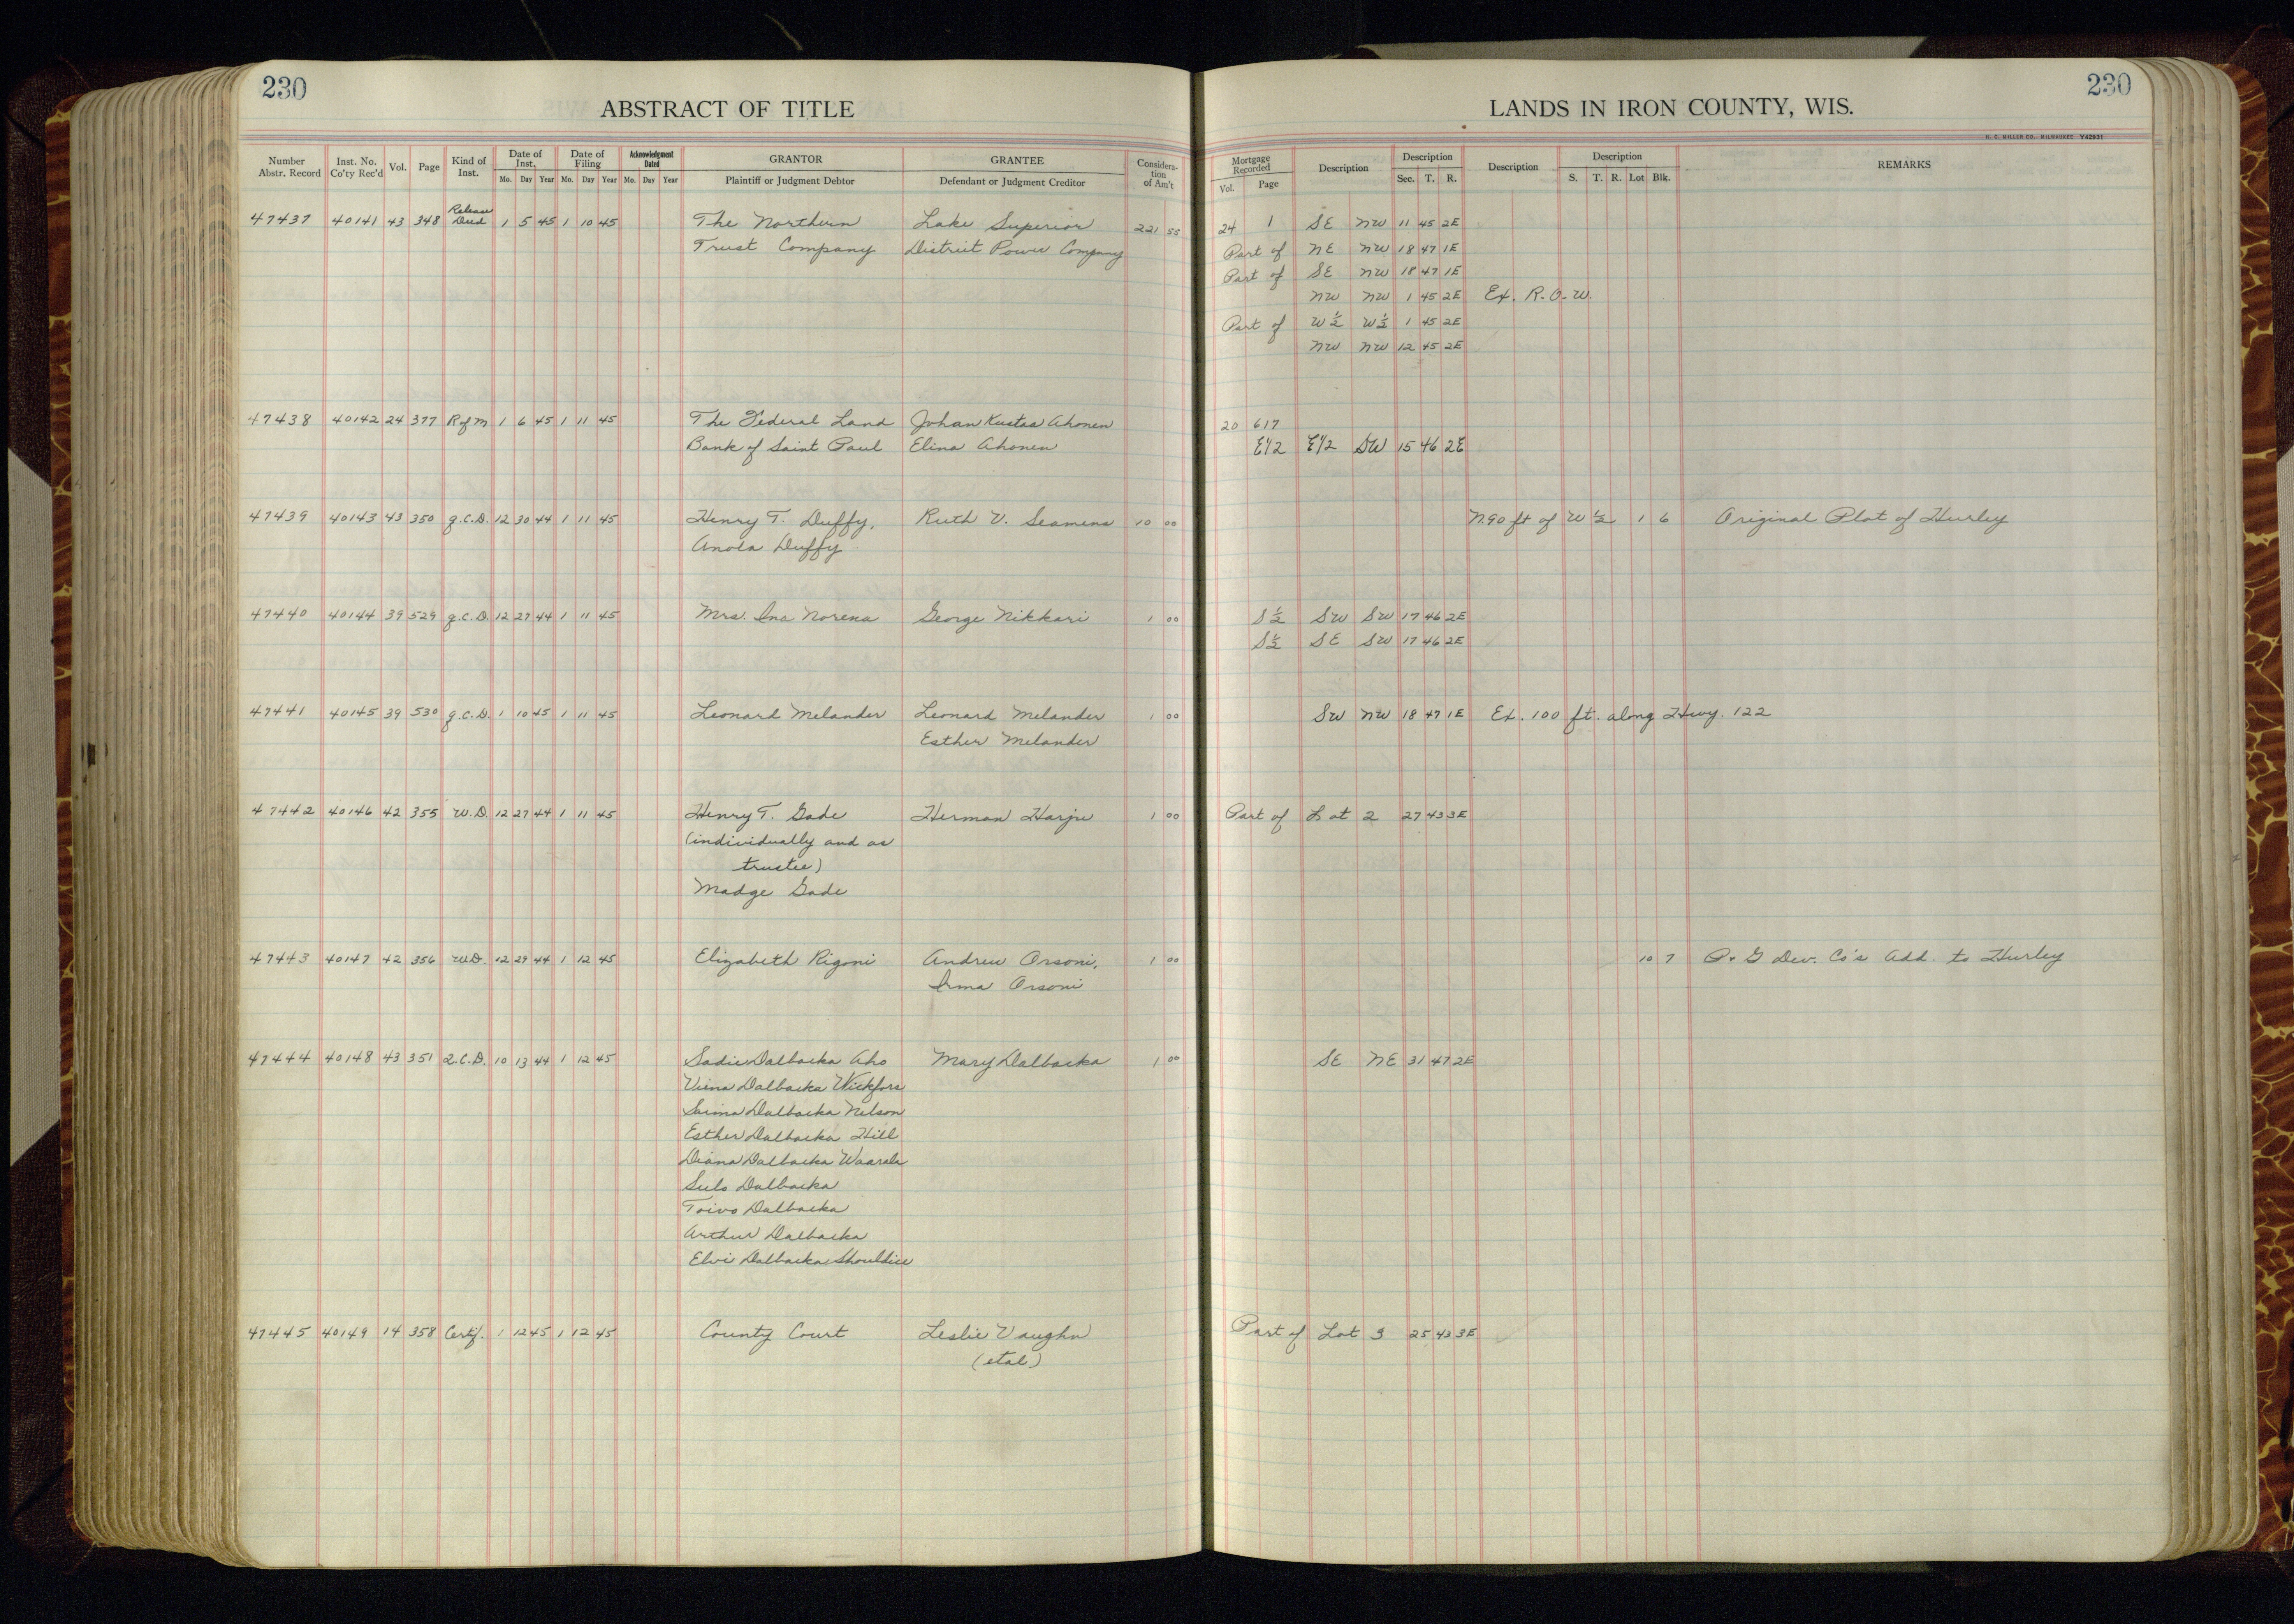 230
ABSTRACT OF TITLE
Number Abstr. Record | Inst. No. Co'ty Rec'd | Vol. | Page | Kind of Inst. | Date of Inst. Mo. Day Year | Date of Filing Mo. Day Year | Acknowledgment Dated Mo. Day Year | GRANTOR Plaintiff or Judgment Debtor | GRANTEE Defendant or Judgment Creditor | Considera-tion of Am't
47437 40141 43 348 Release Deed 1 5 45 1 10 45 The Northern Lake Superior 221 55
Trust Company District Power Company
47438 40142 24 377 R of M 1 6 45 1 11 45 The Federal Land Johan Kustaa Ahonen
Bank of Saint Paul Elina Ahonen
47439 40143 43 350 q.C.D. 12 30 44 1 11 45 Henry T. Duffy, Ruth V. Seamens 10 00
Anola Duffy
47440 40144 39 529 q.C.D. 12 27 44 1 11 45 Mrs. Ina Norena George Nikkari 1 00
47441 40145 39 530 q.C.D. 1 10 45 1 11 45 Leonard Melander Leonard Melander 1 00
Esther Melander
47442 40146 42 355 W.D. 12 27 44 1 11 45 Henry T. Gade Herman Harju 1 00
(individually and as
trustee)
Madge Gade
47443 40147 42 356 W.D. 12 29 44 1 12 45 Elizabeth Rigoni Andrew Orsoni, 1 00
Irma Orsoni
47444 40148 43 351 Q.C.D. 10 13 44 1 12 45 Sadie Dalbacka Aho Mary Dalbacka 1 00
Viena Dalbacka Wickfors
Saima Dalbacka Nelson
Esther Dalbacka Hill
Diana Dalbacka Waarala
Sulo Dalbacka
Toivo Dalbacka
Arthur Dalbacka
Elvi Dalbacka Shouldice
47445 40149 14 358 Certif. 1 12 45 1 12 45 County Court Leslie Vaughn
(etal)
230
LANDS IN IRON COUNTY, WIS.
H. C. MILLER CO., MILWAUKEE Y42931
Mortgage Recorded Vol. Page | Description | Description Sec. T. R. | Description | Description S. T. R. Lot Blk. | REMARKS
24 1 SE NW 11 45 2E
Part of NE NW 18 47 1E
Part of SE NW 18 47 1E
NW NW 1 45 2E Ex. R.O.W.
Part of W½ W½ 1 45 2E
NW NW 12 45 2E
20 617
E1/2 E1/2 SW 15 46 2E
N.90 ft of W½ 1 6 Original Plat of Hurley
S½ SW SW 17 46 2E
S½ SE SW 17 46 2E
SW NW 18 47 1E Ex. 100 ft. along Hwy. 122
Part of Lot 2 27 43 3E
10 7 P & G Dev. Co's Add. to Hurley
SE NE 31 47 2E
Part of Lot 3 25 43 3E